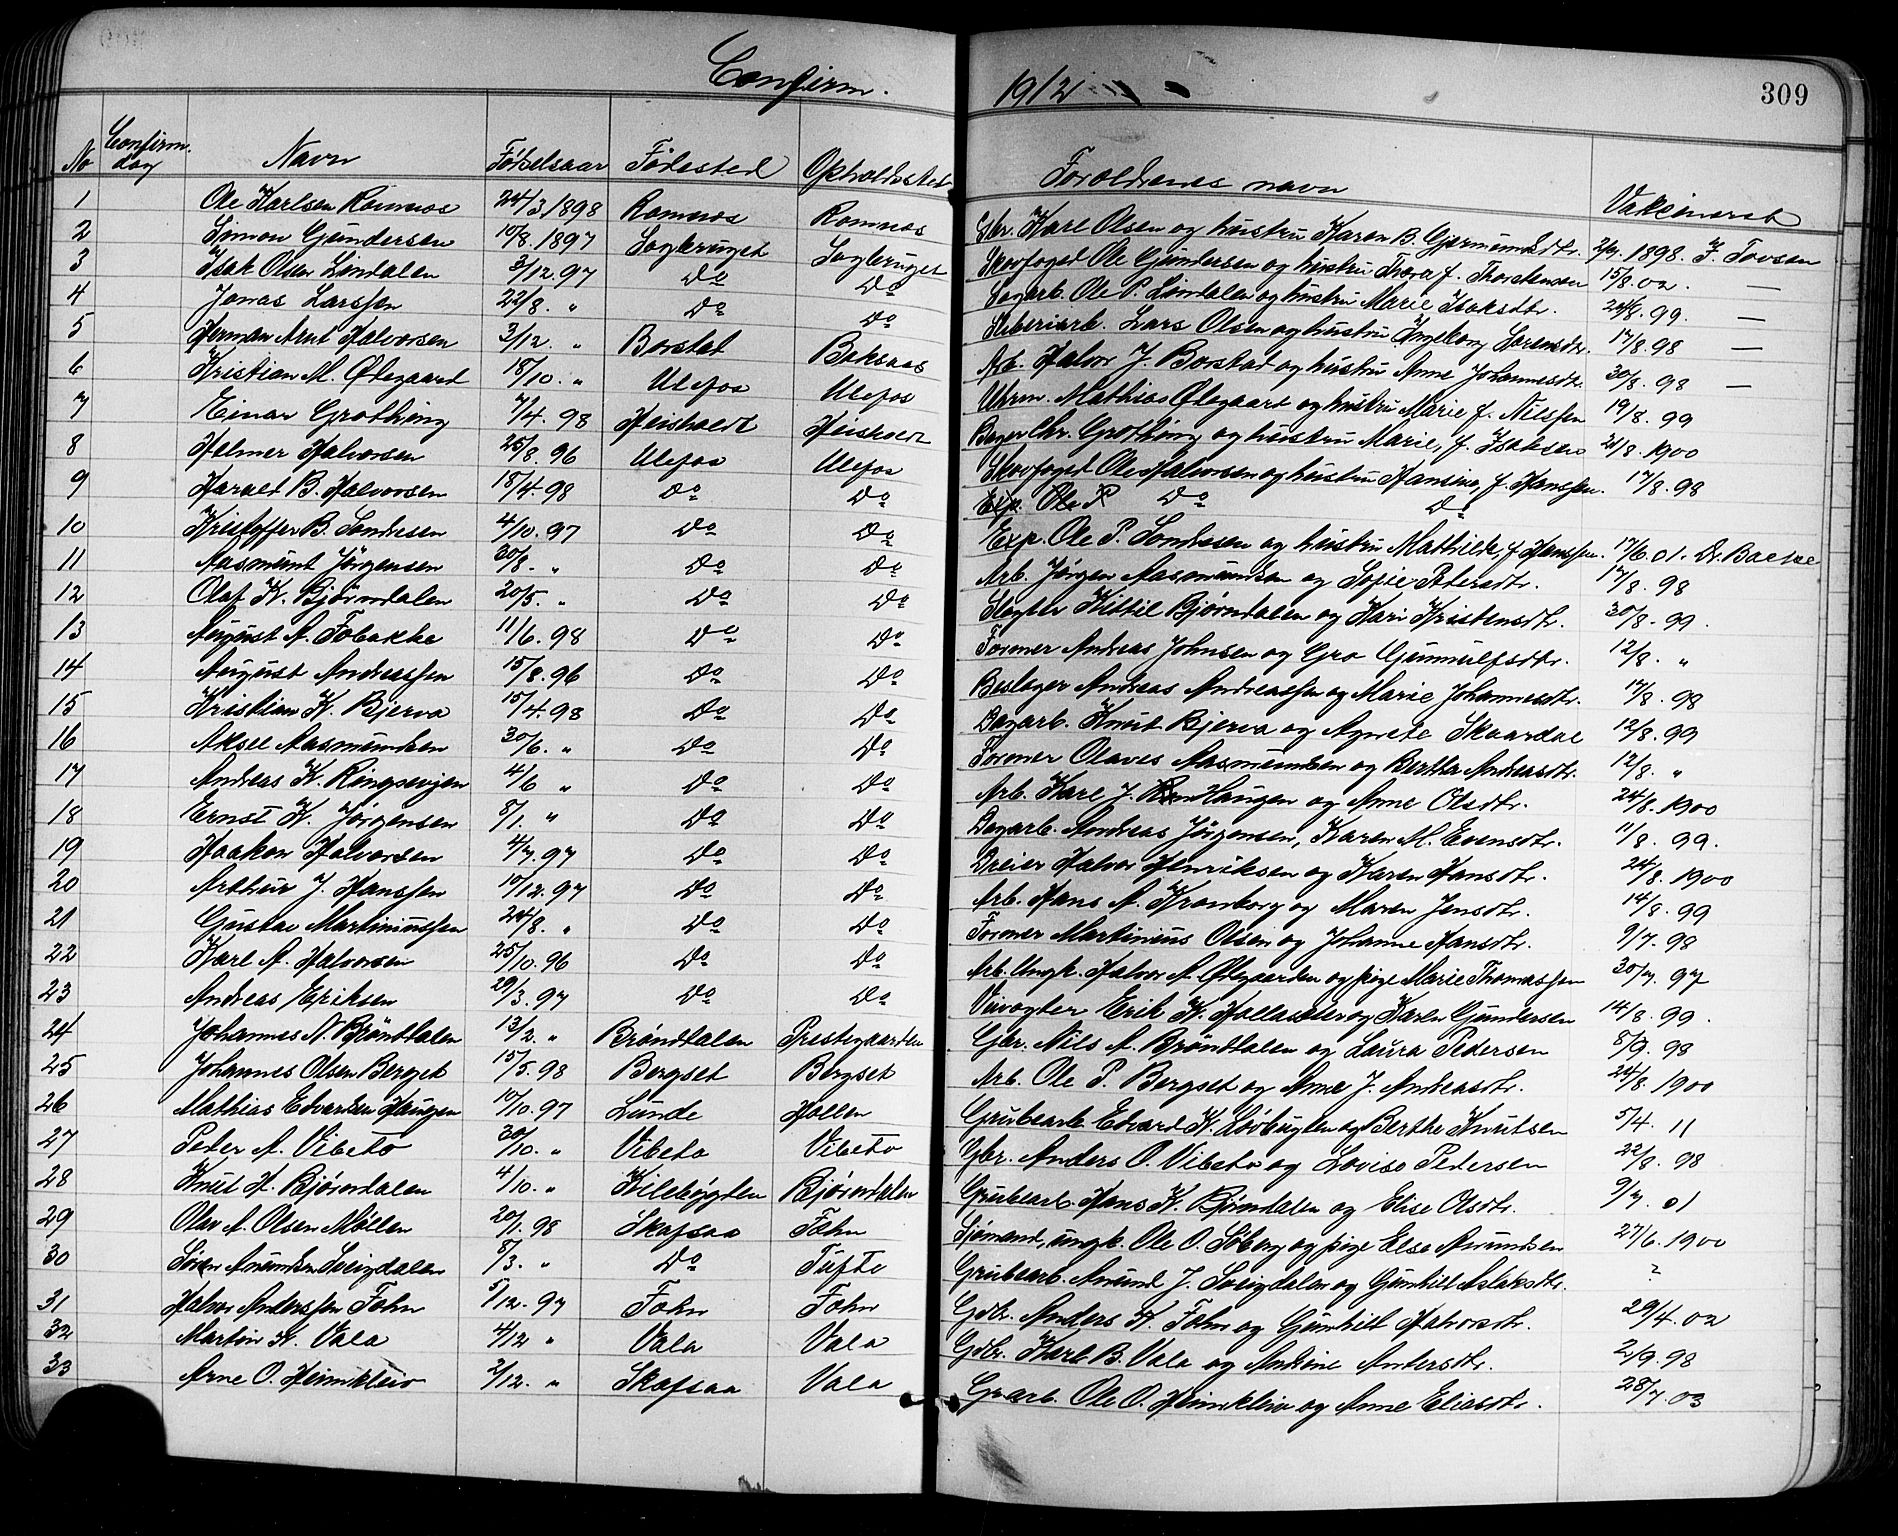 Confirm. 1912 309
No Confirm. dag Navn Fødselsaar Fødested Opholdssted Foreldrenes navn Vaksineret
1 Ole Karlsen Romnes 24/3.1898 Romnes Romnes Gbr. Karl Olsen og hustru Karen B. Gjermundsdtr. 2/9. 1898. F. Tovsen
2 Simon Gundersen 10/8.1897 Sagbruget Sagbruget Skovfoged Ole Gundersen og hustru Thora f. Thorstensen 15/8.02. —
3 Isak Olsen Lindalen 3/12.97 Do Do Sagarb. Ole P. Lindalen og hustru Marie Isaksdtr. 24/8.99. —
4 Jonas Larssen 22/8. " Do Do Støberiarb. Lars Olsen og hustru Ingeborg Sørensdtr. 17/8.98 —
5 Herman Arnt Halvorsen 3/12. " Borstad Baksaas Arb. Halvor J. Borstad og hustru Anne Johannesdtr. 30/8.98 —
6 Kristian M. Ødegaard 18/10. " Ulefos Ulefos Uhrm. Mathias Ødegaard og hustru Marie f. Nilssen 19/8.99
7 Einar Grothing 7/4.98 Heisholdt Heisholdt Bager Chr. Grothing og hustru Marie, f. Isaksen 21/8.1900
8 Helmer Halvorsen 25/8.96 Ulefos Ulefos Skovfoged Ole Halvorsen og hustru Hansine, f. Hanssen. 17/8.98
9 Harald B. Halvorsen 18/4.98 Do Do Exp. Ole P Do Do
10 Kristoffer B. Sondresen 4/10.97 Do Do Exp. Ole P. Sondresen og hustru Mathilde, f. Hanssen. 17/6.01. Dr. Backe
11 Aasmund Jörgensen 30/8. " Do Do Arb. Jörgen Aasmundsen og Sofie Petersdtr. 17/8.98
12 Olaf K. Bjørndalen 20/5. " Do Do Slagter Kittil Bjørndalen og Kari Kristensdtr. 30/8.99.
13 August A. Fobakke 11/6.98 Do Do Former Andreas Johnsen og Gro Gunnulfsdtr. 12/8. "
14 August Andreassen 15/8.96 Do Do Beslager Andreas Andreassen og Marie Johannesdtr. 17/8.98
15 Kristian K. Bjerva 15/4.98 Do Do Dagarb. Knut Bjerva og Agnete Skaardal 12/8.99
16 Aksel Aasmundsen 30/6. " Do Do Former Olaves Aasmundsen og Berthe Andreasdtr. 12/8. "
17 Andreas K. Ringsevjen 4/6 " Do Do Arb. Karl J. Haugen og Anne Olsdtr. 24/8.1900
18 Ernst K. Jørgensen 8/1. " Do Do Dagarb. Andreas Jörgensen, Karen M. Evensdtr. 11/8.99.
19 Haakon Halvorsen 4/7.97 Do Do Dreier Halvor Henriksen og Karen Hansdtr. 24/8.1900
20 Arthur J. Hanssen 10/12.97 Do Do Arb. Hans A. Kronborg og Maren Jensdtr. 14/8.99
21 Gustav Martiniussen 24/8. " Do Do Former Martinius Olsen og Johanne Hansdtr. 9/7.98
22 Karl A. Halvorsen 25/10.96 Do Do Arb. Ungk. Halvor A. Ødegaarden og pige Marie Thomassen 30/7.97
23 Andreas Eriksen 29/3.97 Do Do Veivogter Erik K. Hollasæter og Karen Gundersen 14/8.99.
24 Johannes N. Bröndalen 13/2. " Brøndalen Prestegaarden Gbr. Nils A. Bröndalen og Laura Pedersen 8/9.98
25 Johannes Olsen Berget 15/5.98 Bergset Bergset Arb. Ole P. Bergset og Anne J. Andreasdtr. 24/8.1900
26 Mathias Edvardsen Haugen 10/10.97 Lunde Hollen Grubearb. Edvard K. Løvbugten og Berthe Knutsen 5/4.11
27 Peder A. Vibeto 30/10. " Vibeto Vibeto Gbr. Anders O. Vibeto og Lovise Pedersen 22/8.98
28 Knut H. Bjørndalen 4/10. " Kilebygden Bjørndalen Grubearb. Hans K. Bjørndalen og Elise Olsdtr. 9/7.01
29 Olav A. Olsen Møllen 20/1.98 Skafsaa Fæhn Sjømand, ungk. Ole O. Søberg og pige Else Amundsen 27/6.1900
30 Søren Amundsen Sveigdalen 8/3. " Do Tufte Grubearb. Amund J. Sveigdalen og Gunhild Aslaksdtr. ?
31 Halvor Anderssen Fæhn 5/12.97 Fæhn Fæhn Gbr. Anders K. Fæhn og Gunhild Halvorsdtr. 29/4.02
32 Martin K. Vala 4/12 " Vala Vala Gbr. Karl B. Vala og Andrine Andersdtr. 2/9.98
33 Arne O. Heimkleiv 2/12. " Skafsaa Vala Gr.arb. Ole O. Heimkleiv og Anne Eliasdtr. 28/7.03